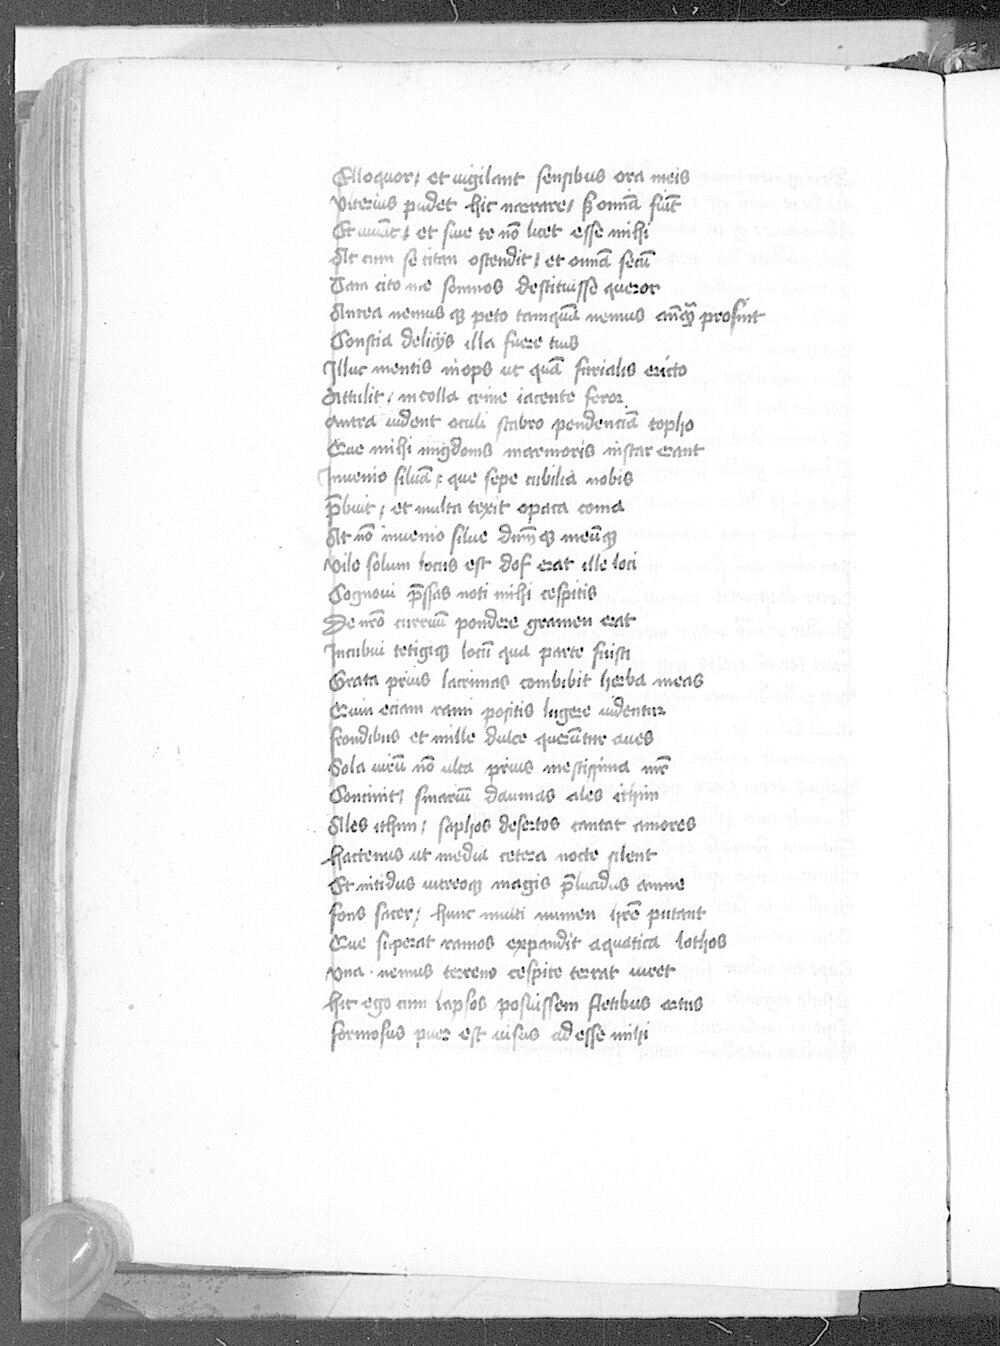 Elloquor / et uigilant sensibus ora meis
Vlterius pudet hic narrare / s̄ omīa fiūt
Et iuuat / et sine te nō licet esse mihi
At cum se titan ostendit / et omīa secū
Tam cito me somnos destituisse queror
Antra nemus qȝ peto tamquā nemus prosint
Conscia delicijs illa fuere tuis
Illuc mentis inops ut quā furialis ericto
Attulit / in colla crine iacente feror
Antra uident oculi scabro pendenciā topho
Que mihi migdonis marmoris instar erant
Inuenio siluā : que sepe cubilia nobis
p̄buit / et multa texit opaca coma
At nō inuenio silue dn̄m qȝ meūqȝ
Vile solum locus est dos erat ille loci
Cognoui p̄ssas noti mihi cespitis
De nr̄o curuū pondere gramen erat
Incubui tetigiqȝ locū qua parte fuisti
Grata prius lacrimas combibit herba meas
Quin eciam rami positis lugere uidentur
frondibus et nulle dulce querūtur aues
Sola uirū nō ulta prius mestissima mr̄
Concinit / smariū daunias ales ithim
Ales ithim / saphos desertos cantat amores
Hactenus ut media cetera nocte silent
Et nitidus uitreoqȝ magis p̄lucidus amne
fons sacer / hunc multi numen hr̄e putant
Que superat ramos expandit aquatica lothos
Vna nemus terreno cespite terrat uiret
Hic ego cum lapsos posuissem fletibus artus
formosus puer est uisus ad esse mihi